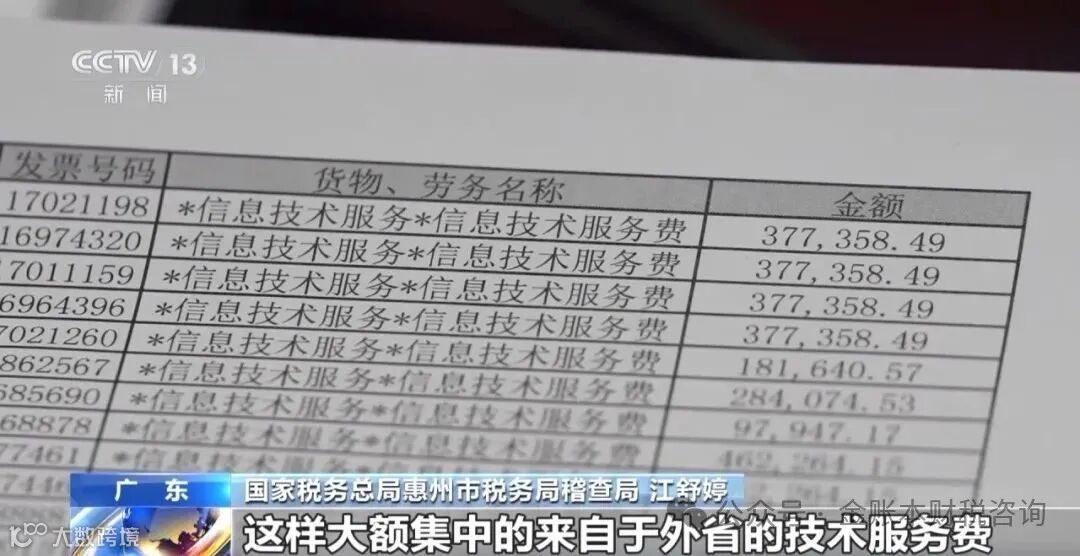 CCTV 13
新闻
发票号码 货物、劳务名称 金额
17021198 *信息技术服务*信息技术服务费 377,358.49
16974320 *信息技术服务*信息技术服务费 377,358.49
17011159 *信息技术服务*信息技术服务费 377,358.49
6964396 *信息技术服务*信息技术服务费 377,358.49
7021260 *信息技术服务*信息技术服务费 181,640.57
862567 *信息技术服务*信息技术服务费 284,074.53
685690 *信息技术服务*信息技术服务费 97,947.17
68878 *信息技术服务*信息技术服务费 462,264.15
77461 *信息技术服务
广东 国家税务总局惠州市税务局稽查局 江舒婷
这样大额集中的来自于外省的技术服务费
公众号·金账本财税咨询
大数跨境